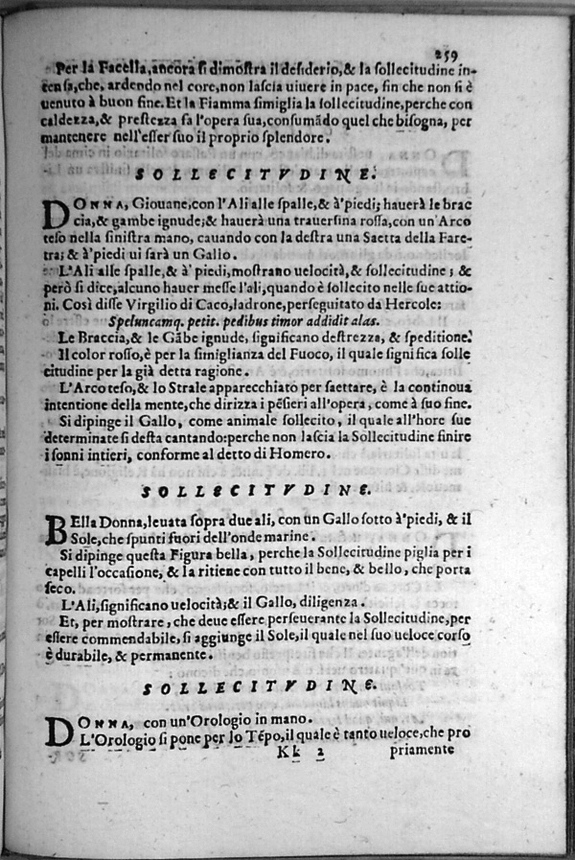 259
Per la Facella,ancora si dimostra il desiderio,& la sollecitudine in-
tensa,che, ardendo nel core,non lascia uiuere in pace, fin che non si è
uenuto à buon fine.Et la Fiamma simiglia la sollecitudine,perche con
caldezza,& prestezza fa l'opera sua,consumãdo quel che bisogna, per
mantenere nell'esser suo il proprio splendore.
SOLLECITVDINE.
DONNA, Giouane,con l'Ali alle spalle,& à'piedi; hauerà le brac
cia,& gambe ignude;& hauerà una trauersina rossa,con un'Arco
teso nella sinistra mano, cauando con la destra una Saetta della Fare-
tra; & à'piedi ui sarà un Gallo.
L'Ali alle spalle,& à'piedi,mostrano uelocità,& sollecitudine; &
però si dice,alcuno hauer messe l'ali,quando è sollecito nelle sue attio-
ni. Così disse Virgilio di Caco,ladrone,perseguitato da Hercole:
Speluncamq. petit. pedibus timor addidit alas.
Le Braccia,& le Gãbe ignude, significano destrezza, & speditione.
Il color rosso,è per la simiglianza del Fuoco, il quale significa solle
citudine per la già detta ragione.
L'Arco teso,& lo Strale apparecchiato per saettare, è la continoua
intentione della mente,che dirizza i pẽsieri all'opera, come à suo fine.
Si dipinge il Gallo, come animale sollecito, il quale all'hore sue
determinate si desta cantando:perche non lascia la Sollecitudine finire
i sonni intieri, conforme al detto di Homero.
SOLLECITVDINE.
BElla Donna,leuata sopra due ali, con un Gallo sotto à'piedi, & il
Sole,che spunti fuori dell'onde marine.
Si dipinge questa Figura bella, perche la Sollecitudine piglia per i
capelli l'occasione, & la ritiene con tutto il bene, & bello, che porta
seco.
L'Ali,significano uelocità;& il Gallo, diligenza.
Et, per mostrare, che deue essere perseuerante la Sollecitudine,per
essere commendabile, si aggiunge il Sole,il quale nel suo ueloce corso
è durabile, & permanente.
SOLLECITVDINE.
DONNA, con un'Orologio in mano.
L'Orologio si pone per lo Tẽpo,il quale è tanto ueloce,che pro
Kk 2 priamente